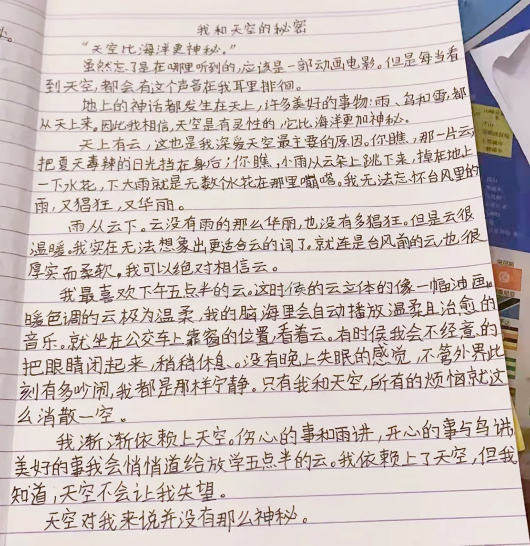 我和天空的秘密
“天空比海洋更神秘。”
虽然忘了是在哪里听到的,应该是一部动画电影。但是每当看
到天空,都会有这个声音在我耳里徘徊。
地上的神话都发生在天上,许多美好的事物:雨、鸟和雪,都
从天上来。因此我相信,天空是有灵性的,它比海洋更加神秘。
天上有云,这也是我深爱天空最主要的原因。你瞧,那一片云
把夏天毒辣的日光挡在身后;你瞧,小雨从云朵上跳下来,掉在地上
一下水花,下大雨就是无数个水花在那里嘣嗒。我无法忘怀台风里的
雨,又猖狂,又华丽。
雨从云下。云没有雨的那么华丽,也没有多猖狂。但是云很
温暖。我实在无法想象出更适合云的词了。就连是台风前的云,也很
厚实而柔软。我可以绝对相信云。
我最喜欢下午五点半的云。这时候的云立体的像一幅油画。
暖色调的云极为温柔,我的脑海里会自动播放温柔且治愈的
音乐。就坐在公交车上靠窗的位置,看着云。有时候我会不经意的
把眼睛闭起来,稍稍休息。没有晚上失眠的感觉,不管外界此
刻有多吵闹,我都是那样宁静。只有我和天空,所有的烦恼就这
么消散一空。
我渐渐依赖上天空。伤心的事和雨讲,开心的事与鸟讲,
美好的事我会悄悄道给放学五点半的云。我依赖上了天空,但我
知道,天空不会让我失望。
天空对我来说并没有那么神秘。